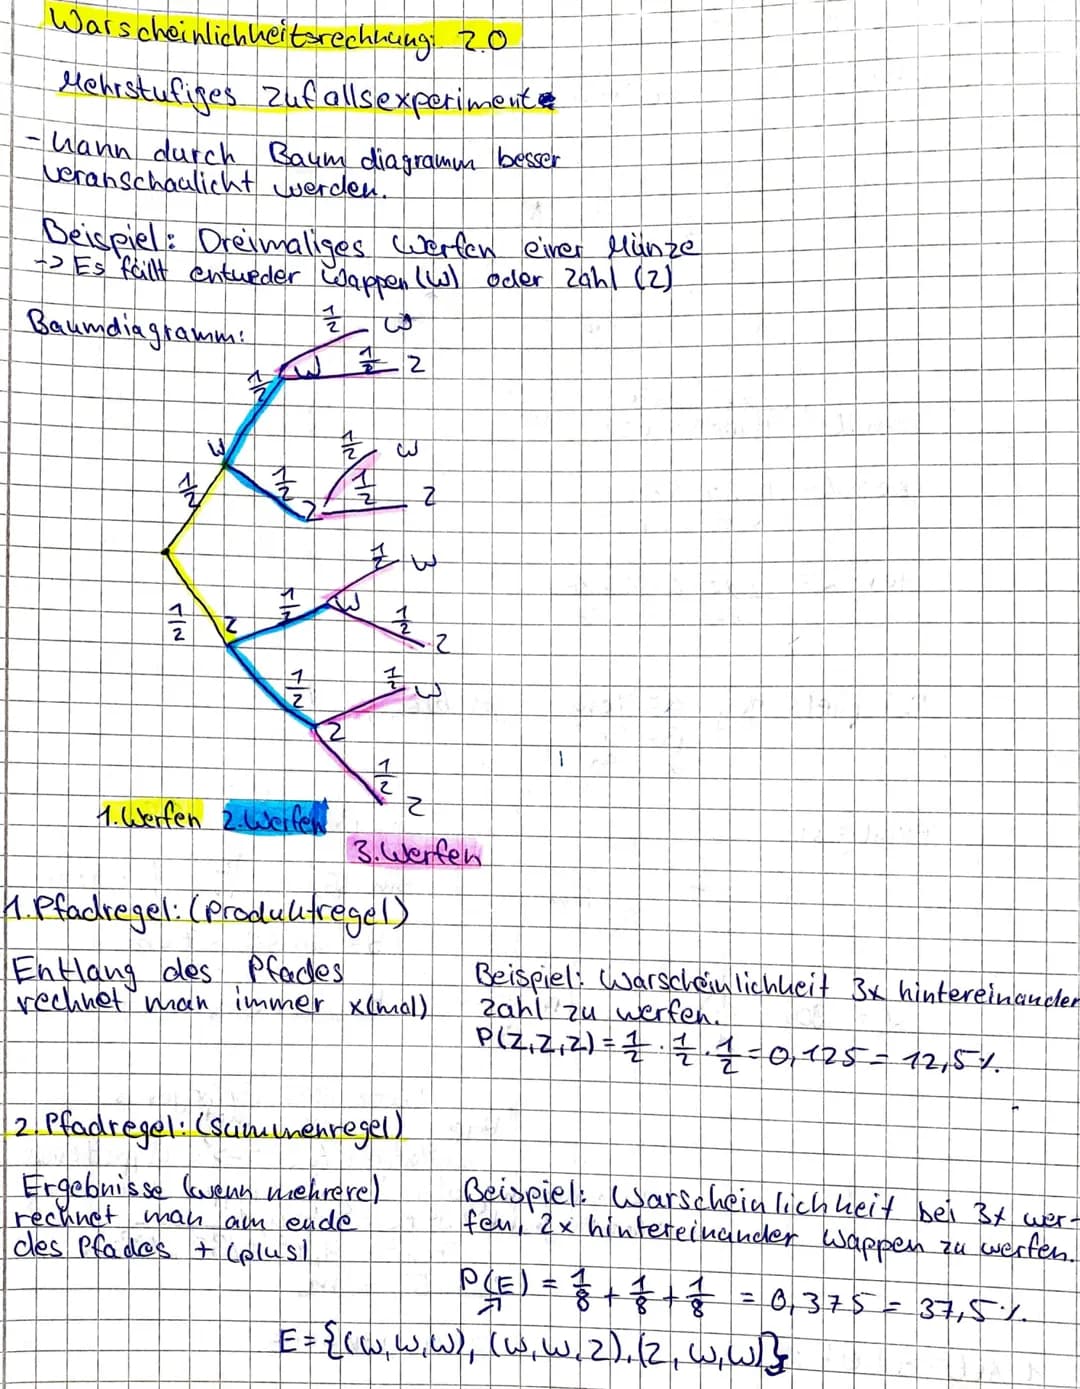 Warscheinlichkeitsrechnung: 2.0
Mehrstufiges Zufallsexperiment
- Kann durch Baum diagramm besser
veranschaulicht werden.
Beispiel: Dreimaliges Werfen einer Münze
-> Es fällt entweder Wappen (W) oder Zahl (Z)
Baumdiagramm:
1/2 W
1/2 W 1/2 Z
W 1/2 W
1/2 1/2 Z 1/2 Z
1/2 W
1/2 Z 1/2 W 1/2 Z
1/2 1/2 W
Z
1/2 Z
1. Werfen 2. Werfen
3. Werfen
1. Pfadregel: (Produktregel)
Entlang des Pfades
rechnet man immer x(mal)
Beispiel: Warscheinlichkeit 3x hintereinander
Zahl zu werfen.
P(Z,Z,Z) = 1/2 · 1/2 · 1/2 = 0,125 = 12,5%.
2. Pfadregel: (Summenregel)
Ergebnisse (wenn mehrere)
rechnet man am ende
des Pfades + (plus)
Beispiel: Warscheinlichkeit bei 3x wer-
fen, 2x hintereinander Wappen zu werfen.
P(E) = 1/8 + 1/8 + 1/8 = 0,375 = 37,5%.
E = {(W,W,W), (W,W,Z), (Z,W,W)}